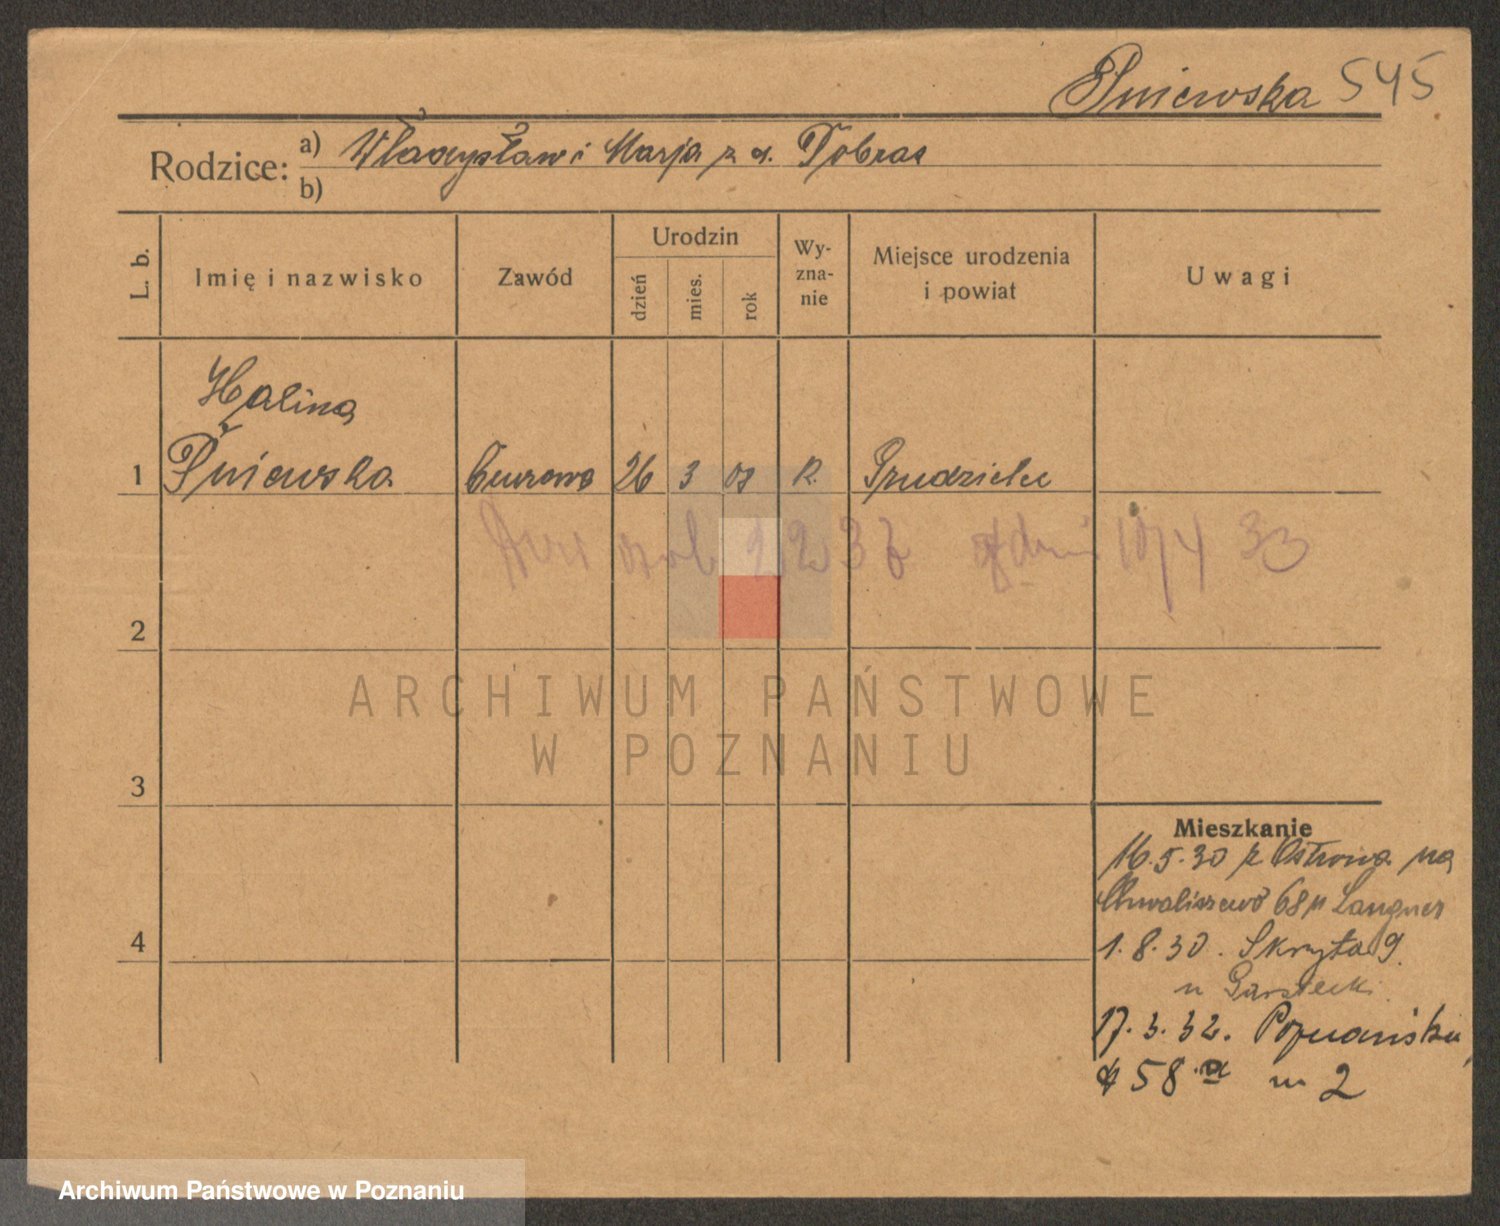 Pniewska 545
Rodzice: a) Władysław i Marja z d. Dobras
b)
L. b.
Imię i nazwisko
Zawód
Urodzin
dzień
mies.
rok
Wy-
zna-
nie
Miejsce urodzenia
i powiat
Uwagi
Halina
1 Pniewska biurowa 26 3 R.
10/4 33
2
3
4
ARCHIWUM PAŃSTWOWE
W POZNANIU
Mieszkanie
16.5.30 z Ostrowa na
Chwaliszewo 68 u Langner
1.8.30. Skryta 9
u Garstecki
17.3.32. Poznańska
58 a m 2
Archiwum Państwowe w Poznaniu